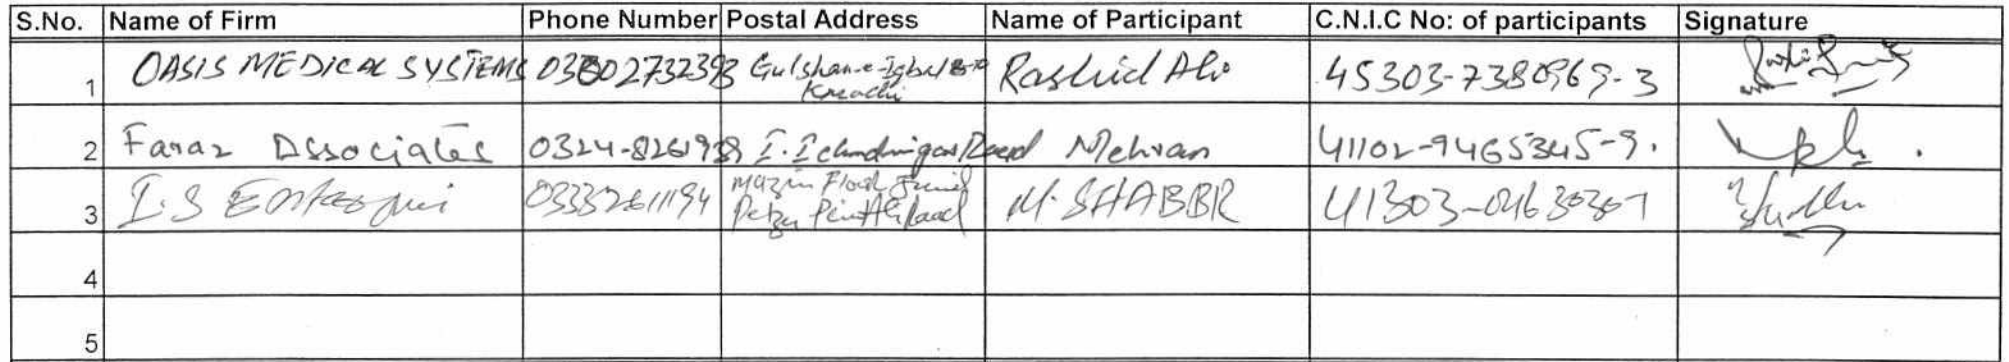 S.No. Name of Firm Phone Number Postal Address Name of Participant C.N.I.C No: of participants Signature
1 OASIS MEDICAL SYSTEMS 03002732393 Gulshan-e-Iqbal Karachi Rashid Ali 45303-7380969-3
2 Faraz Associates 0324-8261938 I.I Chundrigar Road Mehran 41102-9465345-9.
3 I.S Enterprises 03332611194 M. SHABBR 41303-0463030-1
4
5